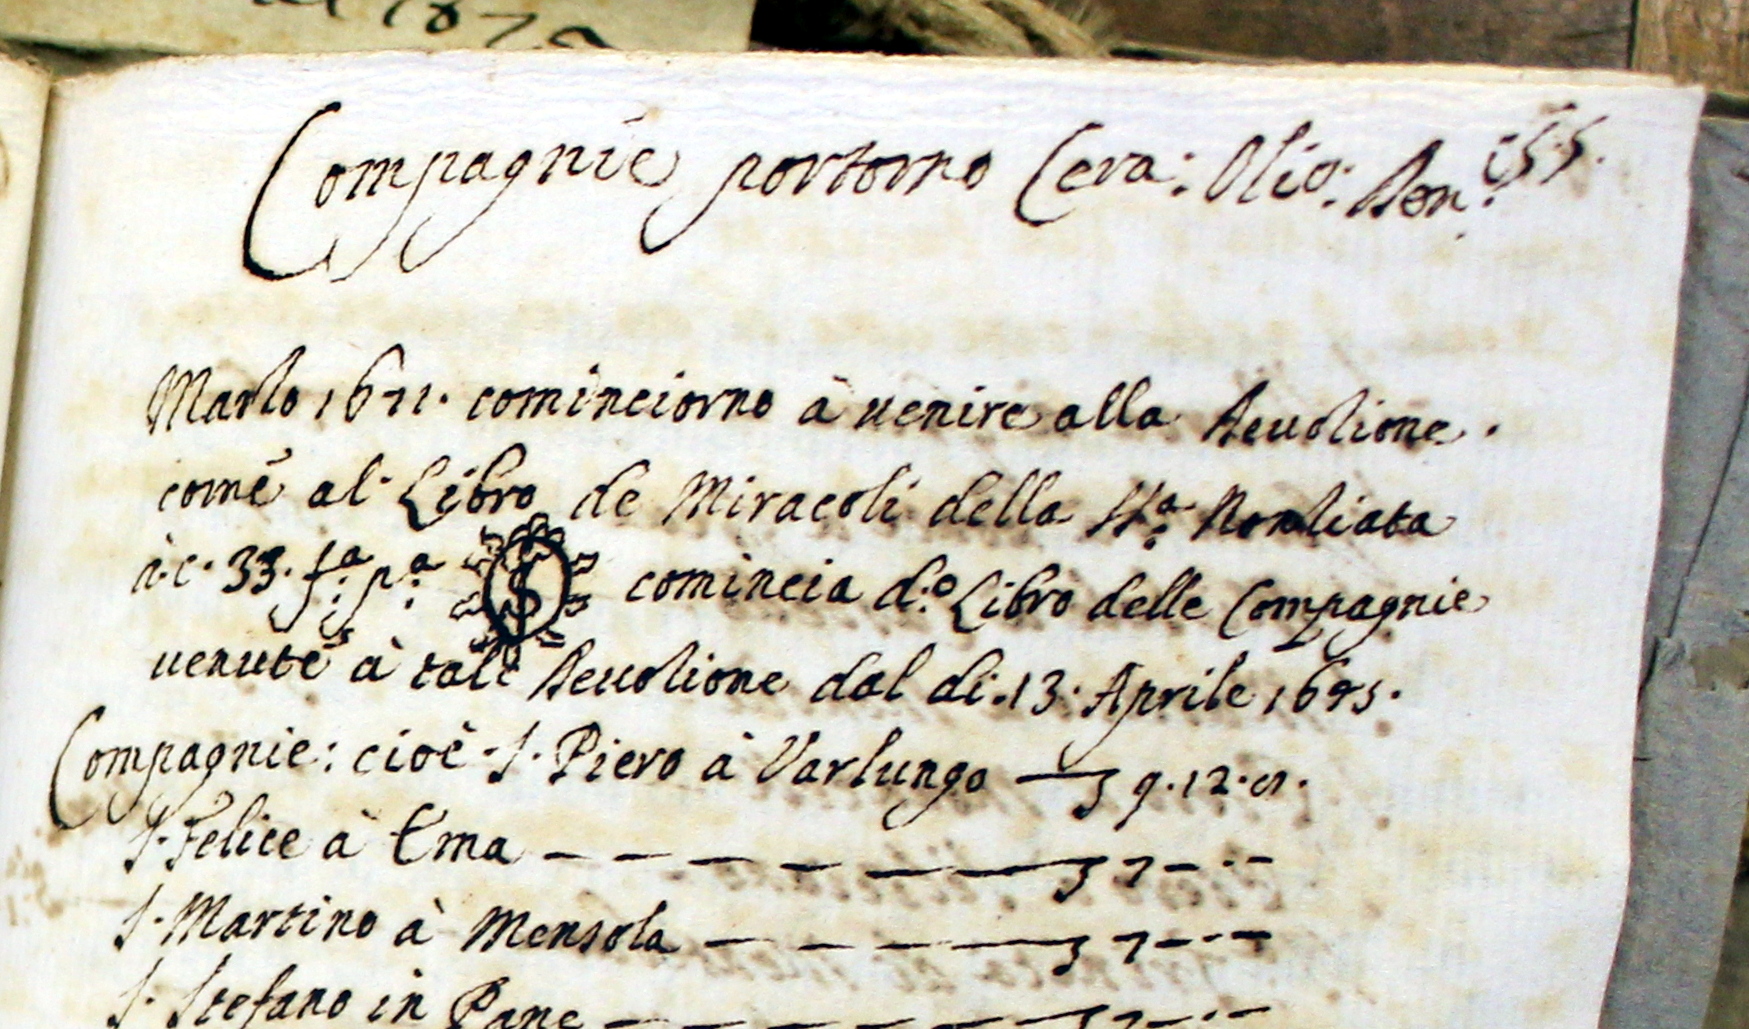 al 167
Compagnie portorno Cera: Olio: Den:i 55.
Marzo 1671. cominciorno à uenire alla Deuozione.
come al Libro de Miracoli della SS:a Nonziata
à c. 33. f:a p:a S comincia d:o Libro delle Compagnie
uenute à tale Deuozione dal dì .13. Aprile 1695.
Compagnie: cioè S. Piero à Varlungo — 9.12.
S. Felice à Ema — — — — — 7 — . —
S. Martino à Mensola — — — — 7 — . —
S. Stefano in Pane — — — — — 7 — . —